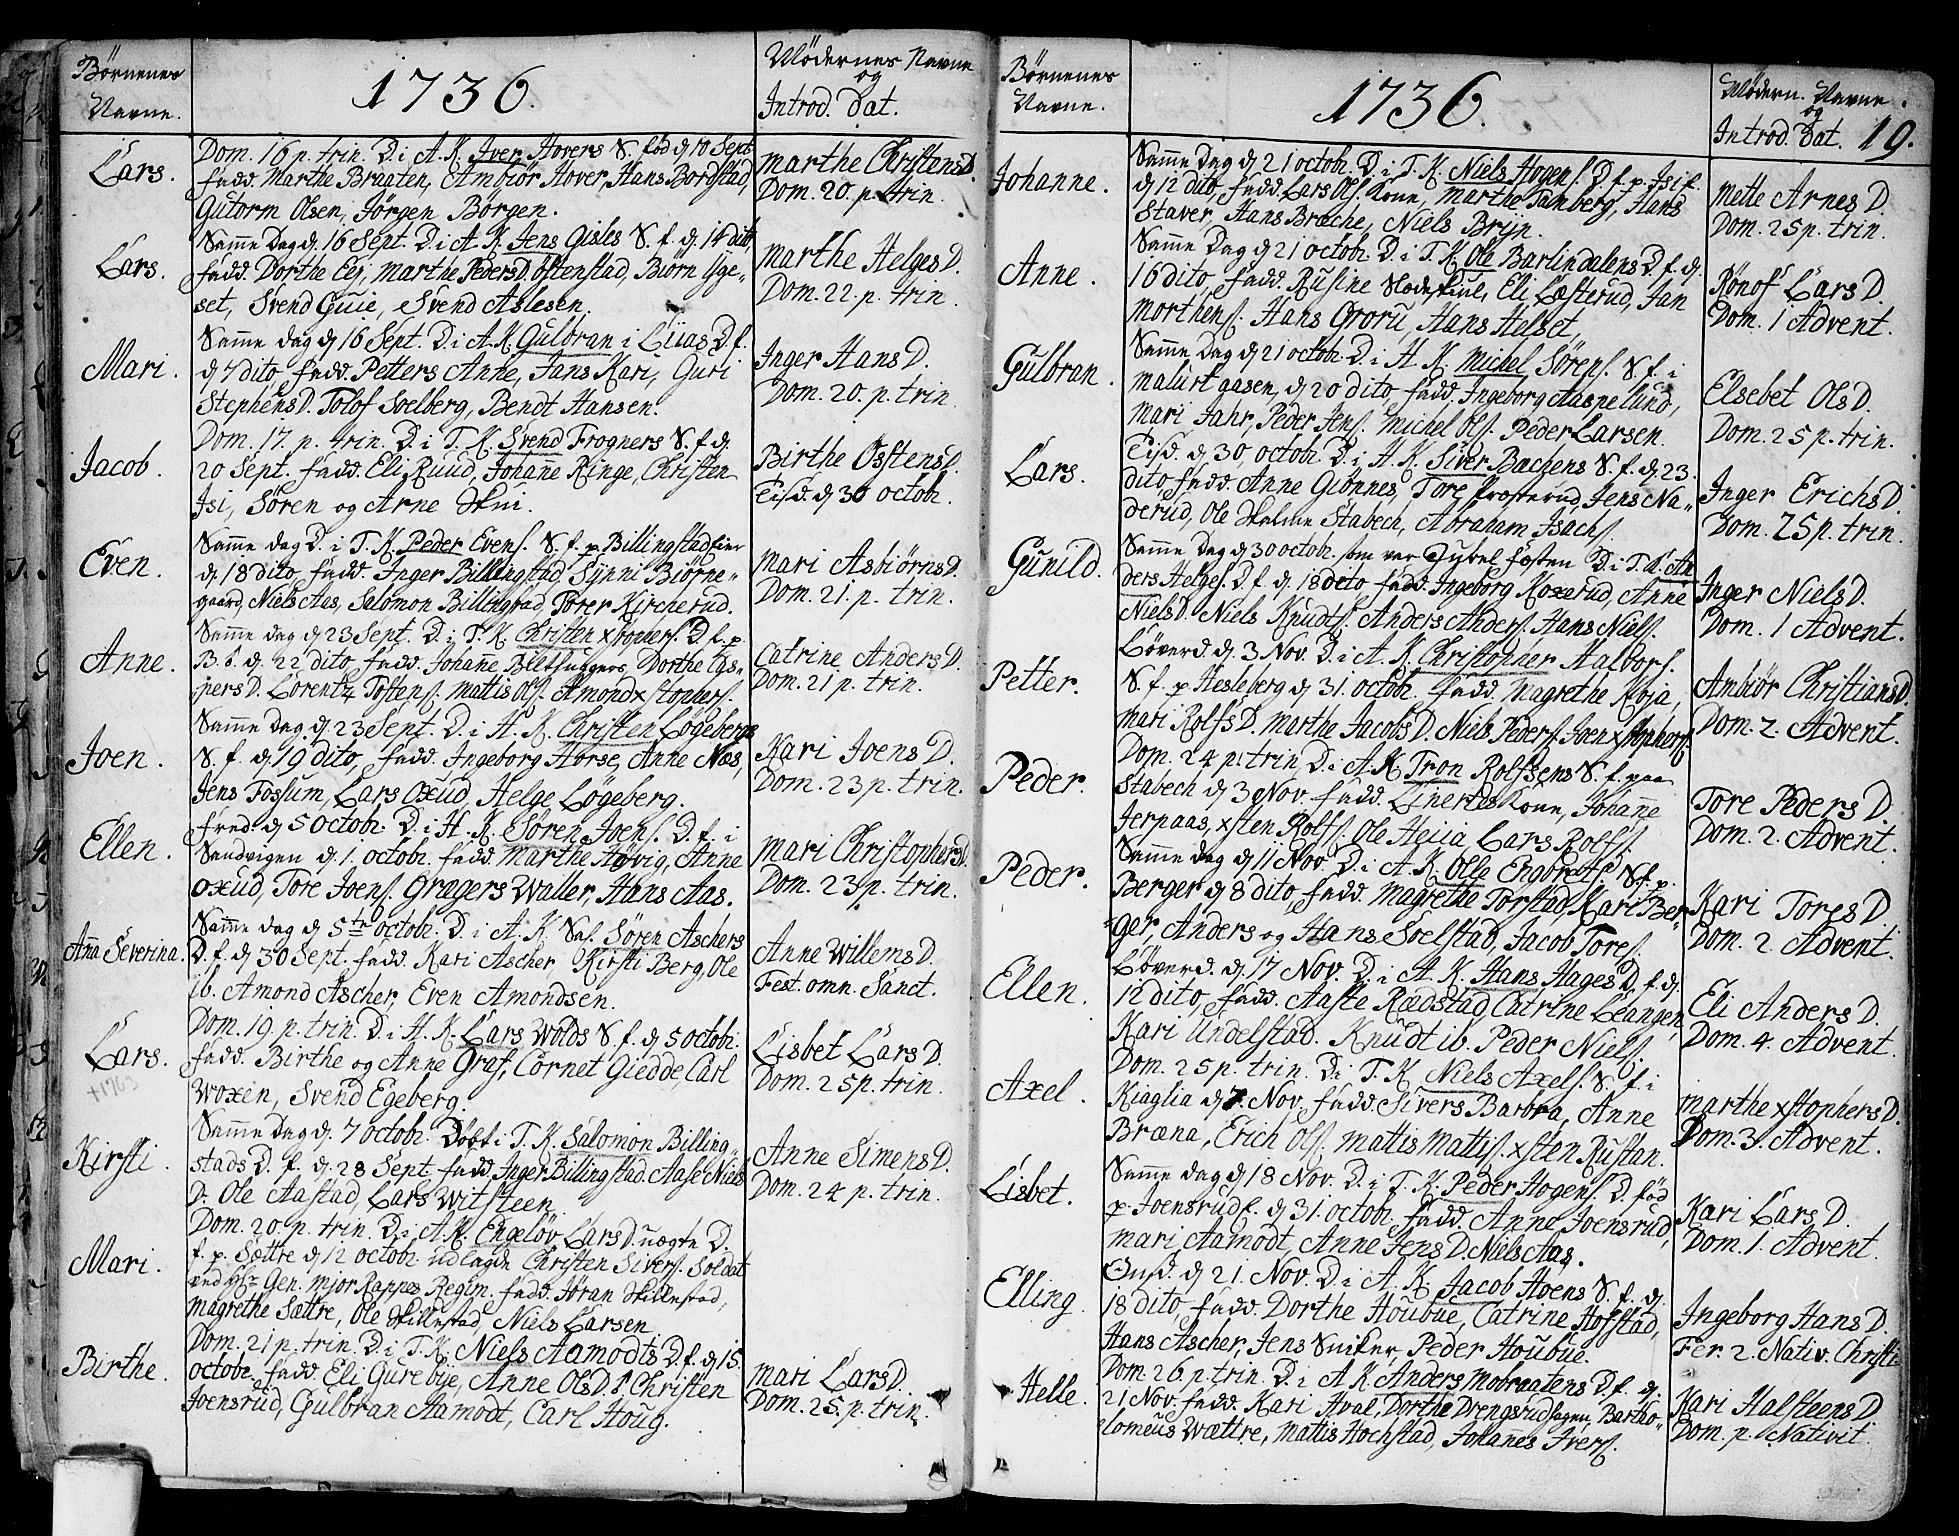 Børnenes
Navne.
1736.
Mødernes Navne
og
Introd. Dat.
Lars.
Dom. 16 p. trin. D. i A. K. Iver Hovers S. fød d. 10 Sept
fadd. Marthe Braaten, Ambiør Hover, Hans Borgstad,
Gutorm Olsen, Jørgen Borgen.
Marthe Christens D.
Dom. 20. p. trin.
Lars.
Samme Dag d. 16 Sept. D. i A. K. Jens Gisles S. f. d. 14 dito
fadd. Dorthe Eey, Marthe Peders D. Østenstad, Biørn
set, Svend Guie, Svend Aslesen.
Marthe Helges D.
Dom. 22. p. trin.
Mari.
Samme dag d. 16 Sept. D. i A. K. Gulbran i Liias D. f.
d. 7 dito, fadd. Petters Anne, Jans Kari, Guri
Stephens D. Tolof Solberg, Bendt Hansen.
Inger Hans D.
Dom. 20. p. trin.
Jacob.
Dom. 17. p. trin. D. i T. K. Svend Frogners S. f. d.
20 Sept. fadd. Eli Ruud, Johanne Ringe, Christen
Isi, Søren og Arne Skui.
Birthe Østens D.
Tisd. d. 30 octobr.
Even.
Samme dag D. i T. K. Peder Evens. S. f. p. Billingstad
d. 18 dito, fadd. Inger Billingstad, Synni Biørne-
gaard, Niels Aas, Salomon Billingstad, Torer Kircherud.
Mari Asbiørns D.
Dom. 21. p. trin.
Anne.
Samme dag d. 23 Sept. D. i T. K. Christen xstophers. D. f. p.
B. S. d. 22 dito, fadd. Johanne Bletsuggers, Dorthe Cas-
pers D. Lorentz Tostens. Mattis Ols. Amond xstophers.
Catrine Anders D.
Dom. 21 p. trin.
Joen.
Samme dag d. 23 Sept. D. i H. K. Christen Løgebergs
S. f. d. 19 dito, fadd. Ingeborg Horse, Anne Næs,
Jens Fossum, Lars Oxud, Helge Løgeberg.
Kari Joens D.
Dom. 23 p. trin.
Ellen.
Fred. d. 5 Octob. D. i H. K. Søren Joens. D. f. i
Sandvigen d. 1. octobr. fadd. Marthe Høvig, Anne
Oxud, Tore Joens. Gragers Waller, Hans Aas.
Mari Christophers D.
Dom. 23 p. trin.
Anna Severina.
Samme dag d. 5te octobr. D. i A. K. Sal. Søren Aschers
D. f. d. 30 Sept. fadd. Kari Ascher, Kirsti Berg, Ole
ib. Amond Ascher, Even Amondsen.
Anne Willems D.
Fest. omn. Sanct.
Lars.
Dom. 19. p. trin. D. i H. K. Lars Wolds S. f. d. 5 octobr.
fadd. Birthe og Anne Graf, Cornet Giedde, Carl
Woxen, Svend Egeberg.
Lisbet Lars D.
Dom. 25 p. trin.
Kirsti.
Samme Dag d. 7 octobr. Døbt i T. K. Salomon Billing-
stads D. f. d. 28 Sept. fadd. Inger Billingstad. Aase Niels
D. Ole Aastad, Lars Witsteen.
Anne Simens D.
Dom. 24 p. trin.
Mari.
Dom. 20. p. trin. D. i A. K. Engeløv Lars D. uægte D.
f. p. Sættre d. 12 octobr. udlagde Christen Sivers. Soldat
ved Hr. Gen. Mjor Rappes Regim. fadd. Jøran Skillestad,
Magrethe Sættre, Ole Skillestad, Niels Larsen.
Birthe.
Dom. 21 p. trin. D. i T. K. Niels Aamodts D. f. d. 15.
octobr. fadd. Eli Gurebye, Anne Ols D. Christen
Joensrud, Gulbran Aamodt, Carl Houg.
Mari Lars D.
Dom. 25. p. trin.
Børnenes
Navne.
1736.
Mødern. Navne.
og
Introd. Dat. 19.
Johanne.
Samme Dag d. 21 octobr. D. i T. K. Niels Hogens. D. f. p. Isi f.
d. 12 dito, fadd. Lars Ols. Kone, Marthe Tamberg, Hans
Staver, Hans Bræche, Niels Bryn.
Mette Arnes D.
Dom. 25 p. trin.
Anne.
Samme Dag d. 21 octobr. D. i T. K. Ole Barlindalens D. f. d.
16 dito, fadd. Rusine Slodeskiul, Eli Læsterud, Jan
Morthens. Hans Groru, Hans Helset.
Rønof Lars D.
Dom. 1 Advent.
Gulbran.
Samme Dag d. 21 octobr. D. i H. K. Michel Sørens. S. f. i
Malurt gasen, d. 20 dito, fadd. Ingeborg Aaspelund,
Mari Jahr, Peder Jens. Michel Ols. Peder Larsen.
Elsebet Ols D.
Dom. 25 p. trin.
Lars.
Tisd. d. 30, octobr. D. i H. K. Siver Bachens S. f. d. 23.
dito, fadd. Anne Giønnes, Tore Prosterud, Jens Na-
derud, Ole Skalme Stabech, Abraham Isachs.
Inger Erichs D.
Dom. 25 p. trin.
Gunild.
Samme Dag d. 30 octobr. som var Jubel festen D. i T. K. An
ders Helges. D. f. d. 18 dito fadd. Ingeborg Koxerud, Anne
Niels D. Niels Knudts. Anders Anders. Hans Niels.
Inger Niels D.
Dom. 1 Advent.
Petter.
Løverd. d. 3 Nov. D. i A. K. Christopher Aalbors.
S. f. p. Hesleberg d. 31. octobr. fadd. Magrethe Koja,
Mari Rolfs D. Marthe Jacobs D. Niels Peders. Joen xstophers.
Ambiør Christians D.
Dom. 2. Advent.
Peder.
Dom. 24 p. trin. D. i A. K. Tron Rolfsens S. f. paa
Stabech d. 3 Nov. fadd. Linertes Kone, Johanne
Jerpaas, xsten Rolfs. Ole Heiia Lars Rolfs.
Tore Peders D.
Dom. 2. Advent.
Peder.
Samme dag d. 11 Nov. D. i A. K. Olle Engbrets. S. f. p.
Berger d. 8 dito, fadd. Magrethe Torstad, Kari Ber-
ger, Anders og Hans Solstad, Jacob Tores.
Kari Tores D.
Dom. 2 Advent.
Ellen.
Løverd. d. 17 Nov. D. i A. K. Hans Hages D. f. d.
12 dito, fadd. Aaste Rædstad, Catrine Leangen,
Kari Undelstad. Knudt ib. Peder Niels.
Eli Anders D.
Dom. 4. Advent.
Axel.
Dom. 25 p. trin. D. i T. K. Niels Axels. S. f. i
Kiaglia d. 7. Nov. fadd. Sivers Barbra, Anne
Bræna, Erich Ols. Mattis Mattis. xsten Rustan.
Marthe xstophers D.
Dom. 3. Advent.
Lisbet.
Samme dag d. 18 Nov. D. i T. K. Peder Hogens. D. fød
p. Joensrud f. d. 31. octobr. fadd. Anne Joensrud,
Mari Aamodt, Anne Jens D. Niels Aas.
Kari Lars D.
Dom. 1. Advent.
Elling.
Onsd. d. 21. Nov. D. i A. K. Jacob Hoens S. f. d.
18 dito, fadd. Dorthe Houbue, Catrine Hofstad,
Hans Ascher, Jens Sniker, Peder Houbue.
Ingeborg Hans D.
Fer. 2. Nativ. Christi
Helle.
Dom. 26. p. trin. D. i A. K. Anders Mobraatens D. f. d.
21 Nov. fadd. Kari Hval, Dorthe Drengsrudhagen, Bartho-
lomeus Wættre, Mattis Hochstad, Johannes Ivers.
Kari Halsteens D.
Dom. p. Nativit.